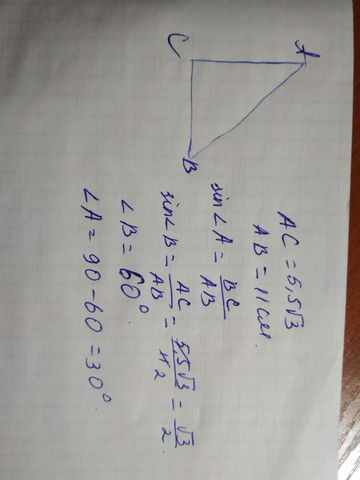 A
C
B
AC = 5,5√3
AB = 11 см.
sin∠A = BC/AB
sin∠B = AC/AB = 5,5√3/11 2 = √3/2.
∠B = 60°.
∠A = 90 - 60 = 30°.